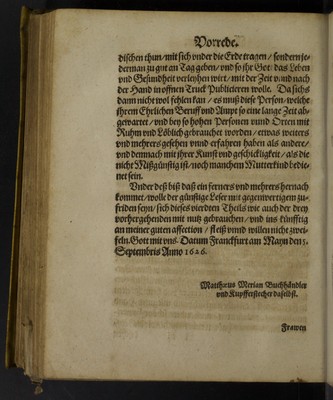 Vorrede.
dischen thun/mit sich vnder die Erde tragen / sondern je-
derman zu gut an Tag geben/ vnd so jhr Got: das Leben
vnd Gesundheit verleyhen wirt/mit der Zeit vnnd nach
der Hand in offnen Truck Publicieren wolle. Da sichs
dann nicht wol fehlen kan / es muß diese Person/welche
jhrem Ehrlichen Beruff vnd Ampt so eine lange Zeit ab-
gewartet / vnd bey so hohen Personen vnnd Orten mit
Ruhm vnd Löblich gebrauchet worden / etwas weiters
vnd mehrers gesehen vnnd erfahren haben als andere/
vnd demnach mit jhrer Kunst vnd geschickligkeit / als die
nicht Mißgünstig ist/noch manchem Mutterkind bedie-
net sein.
Vnder deß biß daß ein ferners vnd mehrers hernach
kommet/wolle der günstige Leser mit gegenwertigem zu-
friden seyn/sich dieses vierdten Theils wie auch der drey
vorhergehenden mit nutz gebrauchen / vnd ins künfftig
an meiner guten affection / fleiß vnnd willen nicht zwei-
feln. Gott mit vns. Datum Franckfurt am Mayn den 5.
Septembris Anno 1626.
Matthæus Merian Buchhändler
vnd Kupfferstecher daselbst.
Frawen